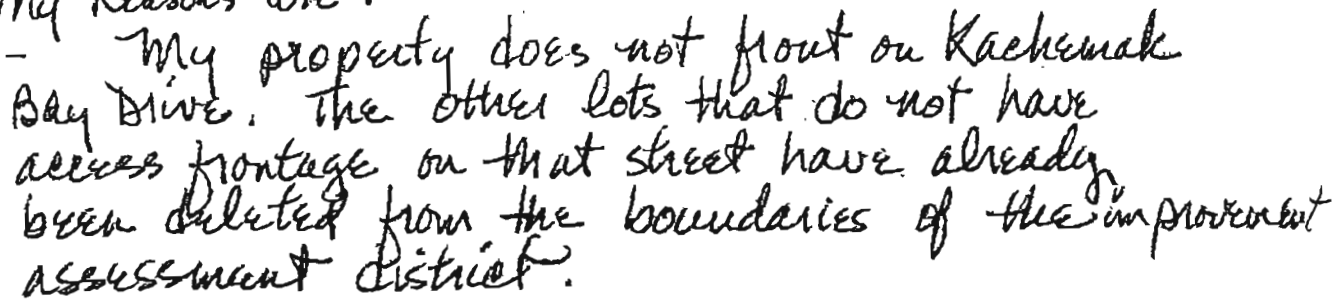 My Reasons are:
- My property does not front on Kachemak
Bay Drive. The other lots that do not have
access frontage on that street have already
been deleted from the boundaries of the improvement
assessment district.